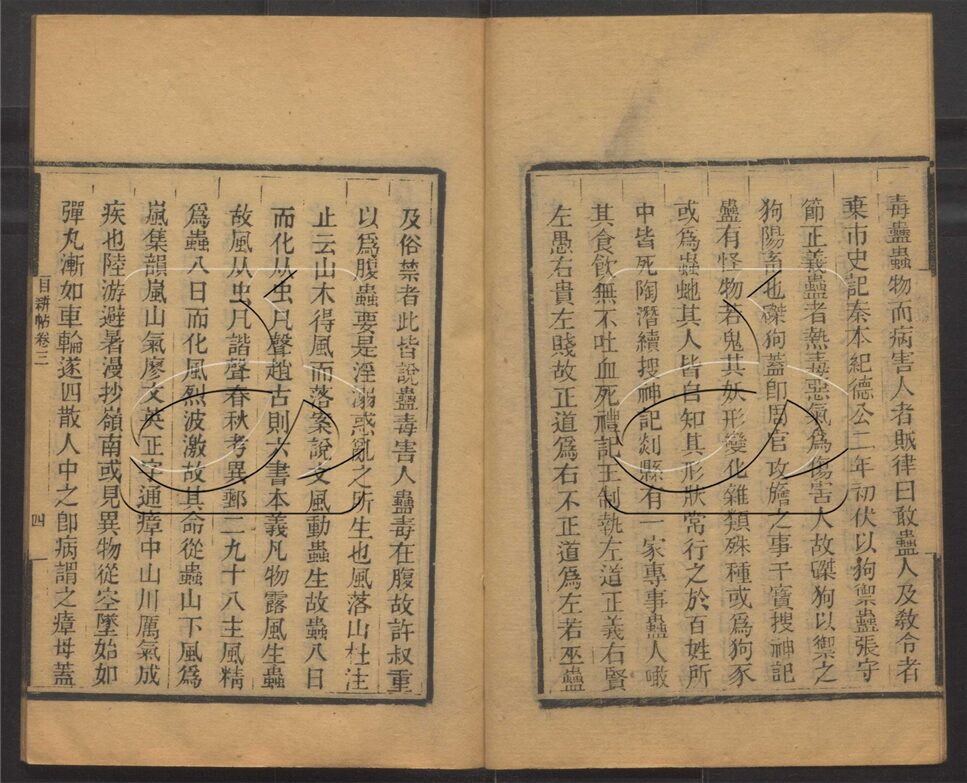 毒蠱蟲物而病害人者賊律曰敢蠱人及敎令者
棄市史記秦本紀德公二年初伏以狗禦蠱張守
節正義蠱者熱毒惡氣爲傷害人故磔狗以禦之
狗陽畜也磔狗蓋卽周官攻禬之事干寶搜神記
蠱有怪物若鬼其妖形變化雜類殊種或爲狗豕
或爲蟲虵其人皆自知其形狀常行之於百姓所
中皆死陶潛續搜神記剡縣有一家專事蠱人噉
其食飲無不吐血死禮記王制執左道正義右賢
左愚右貴左賤故正道爲右不正道爲左若巫蠱
及俗禁者此皆說蠱毒害人蠱毒在腹故許叔重
以爲腹蟲要是淫溺惑亂之所生也風落山杜注
止云山木得風而落案說文風動蟲生故蟲八日
而化从虫凡聲趙古則六書本義凡物露風生蟲
故風从虫凡諧聲春秋考異郵二九十八主風精
爲蟲八日而化風烈波激故其命從蟲山下風爲
嵐集韻嵐山氣廖文英正字通瘴中山川厲氣成
疾也陸游避暑漫抄嶺南或見異物從空墜始如
彈丸漸如車輪遂四散人中之卽病謂之瘴母蓋
目耕帖卷三
四